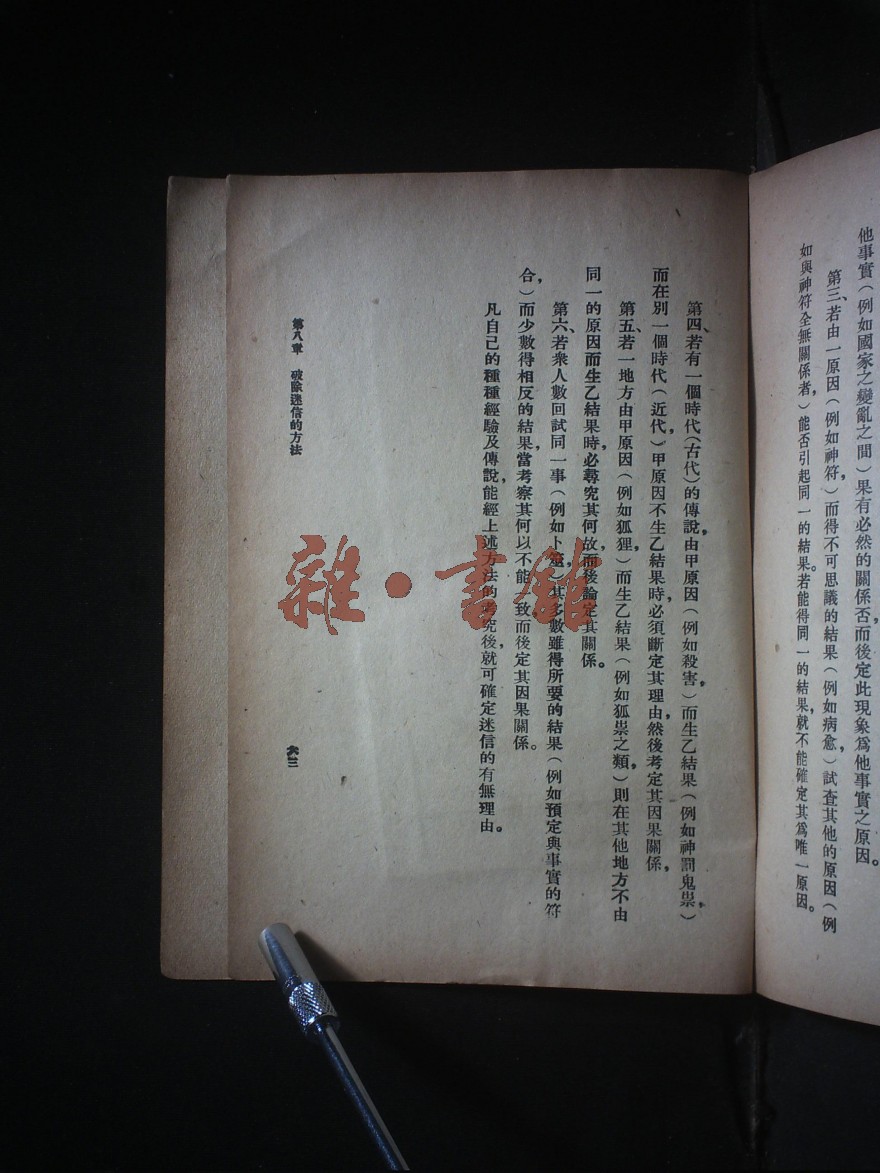 他事實（例如國家之變亂之間）果有必然的關係否，而後定此現象爲他事實之原因。
第三、若由一原因（例如神符）而得不可思議的結果（例如病愈，）試查其他的原因（例
如與神符全無關係者，）能否引起同一的結果。若能得同一的結果，就不能確定其爲唯一原因。
第四、若有一個時代（古代）的傳說，由甲原因（例如殺害）而生乙結果（例如神罰鬼祟，）
而在別一個時代（近代，）甲原因不生乙結果時，必須斷定其理由，然後考定其因果關係，
第五、若一地方由甲原因（例如狐狸，）而生乙結果（例如狐祟之類，）則在其他地方不由
同一的原因而生乙結果時，必尋究其何故，而後論定其關係。
第六、若衆人數回試同一事（例如卜筮，）其多數雖得所要的結果（例如預定與事實的符
合，）而少數得相反的結果，當考察其何以不能一致，而後定其因果關係。
凡自己的種種經驗及傳說，能經上述方法的究後，就可確定迷信的有無理由。
第八章 破除迷信的方法
六三
雜·書館